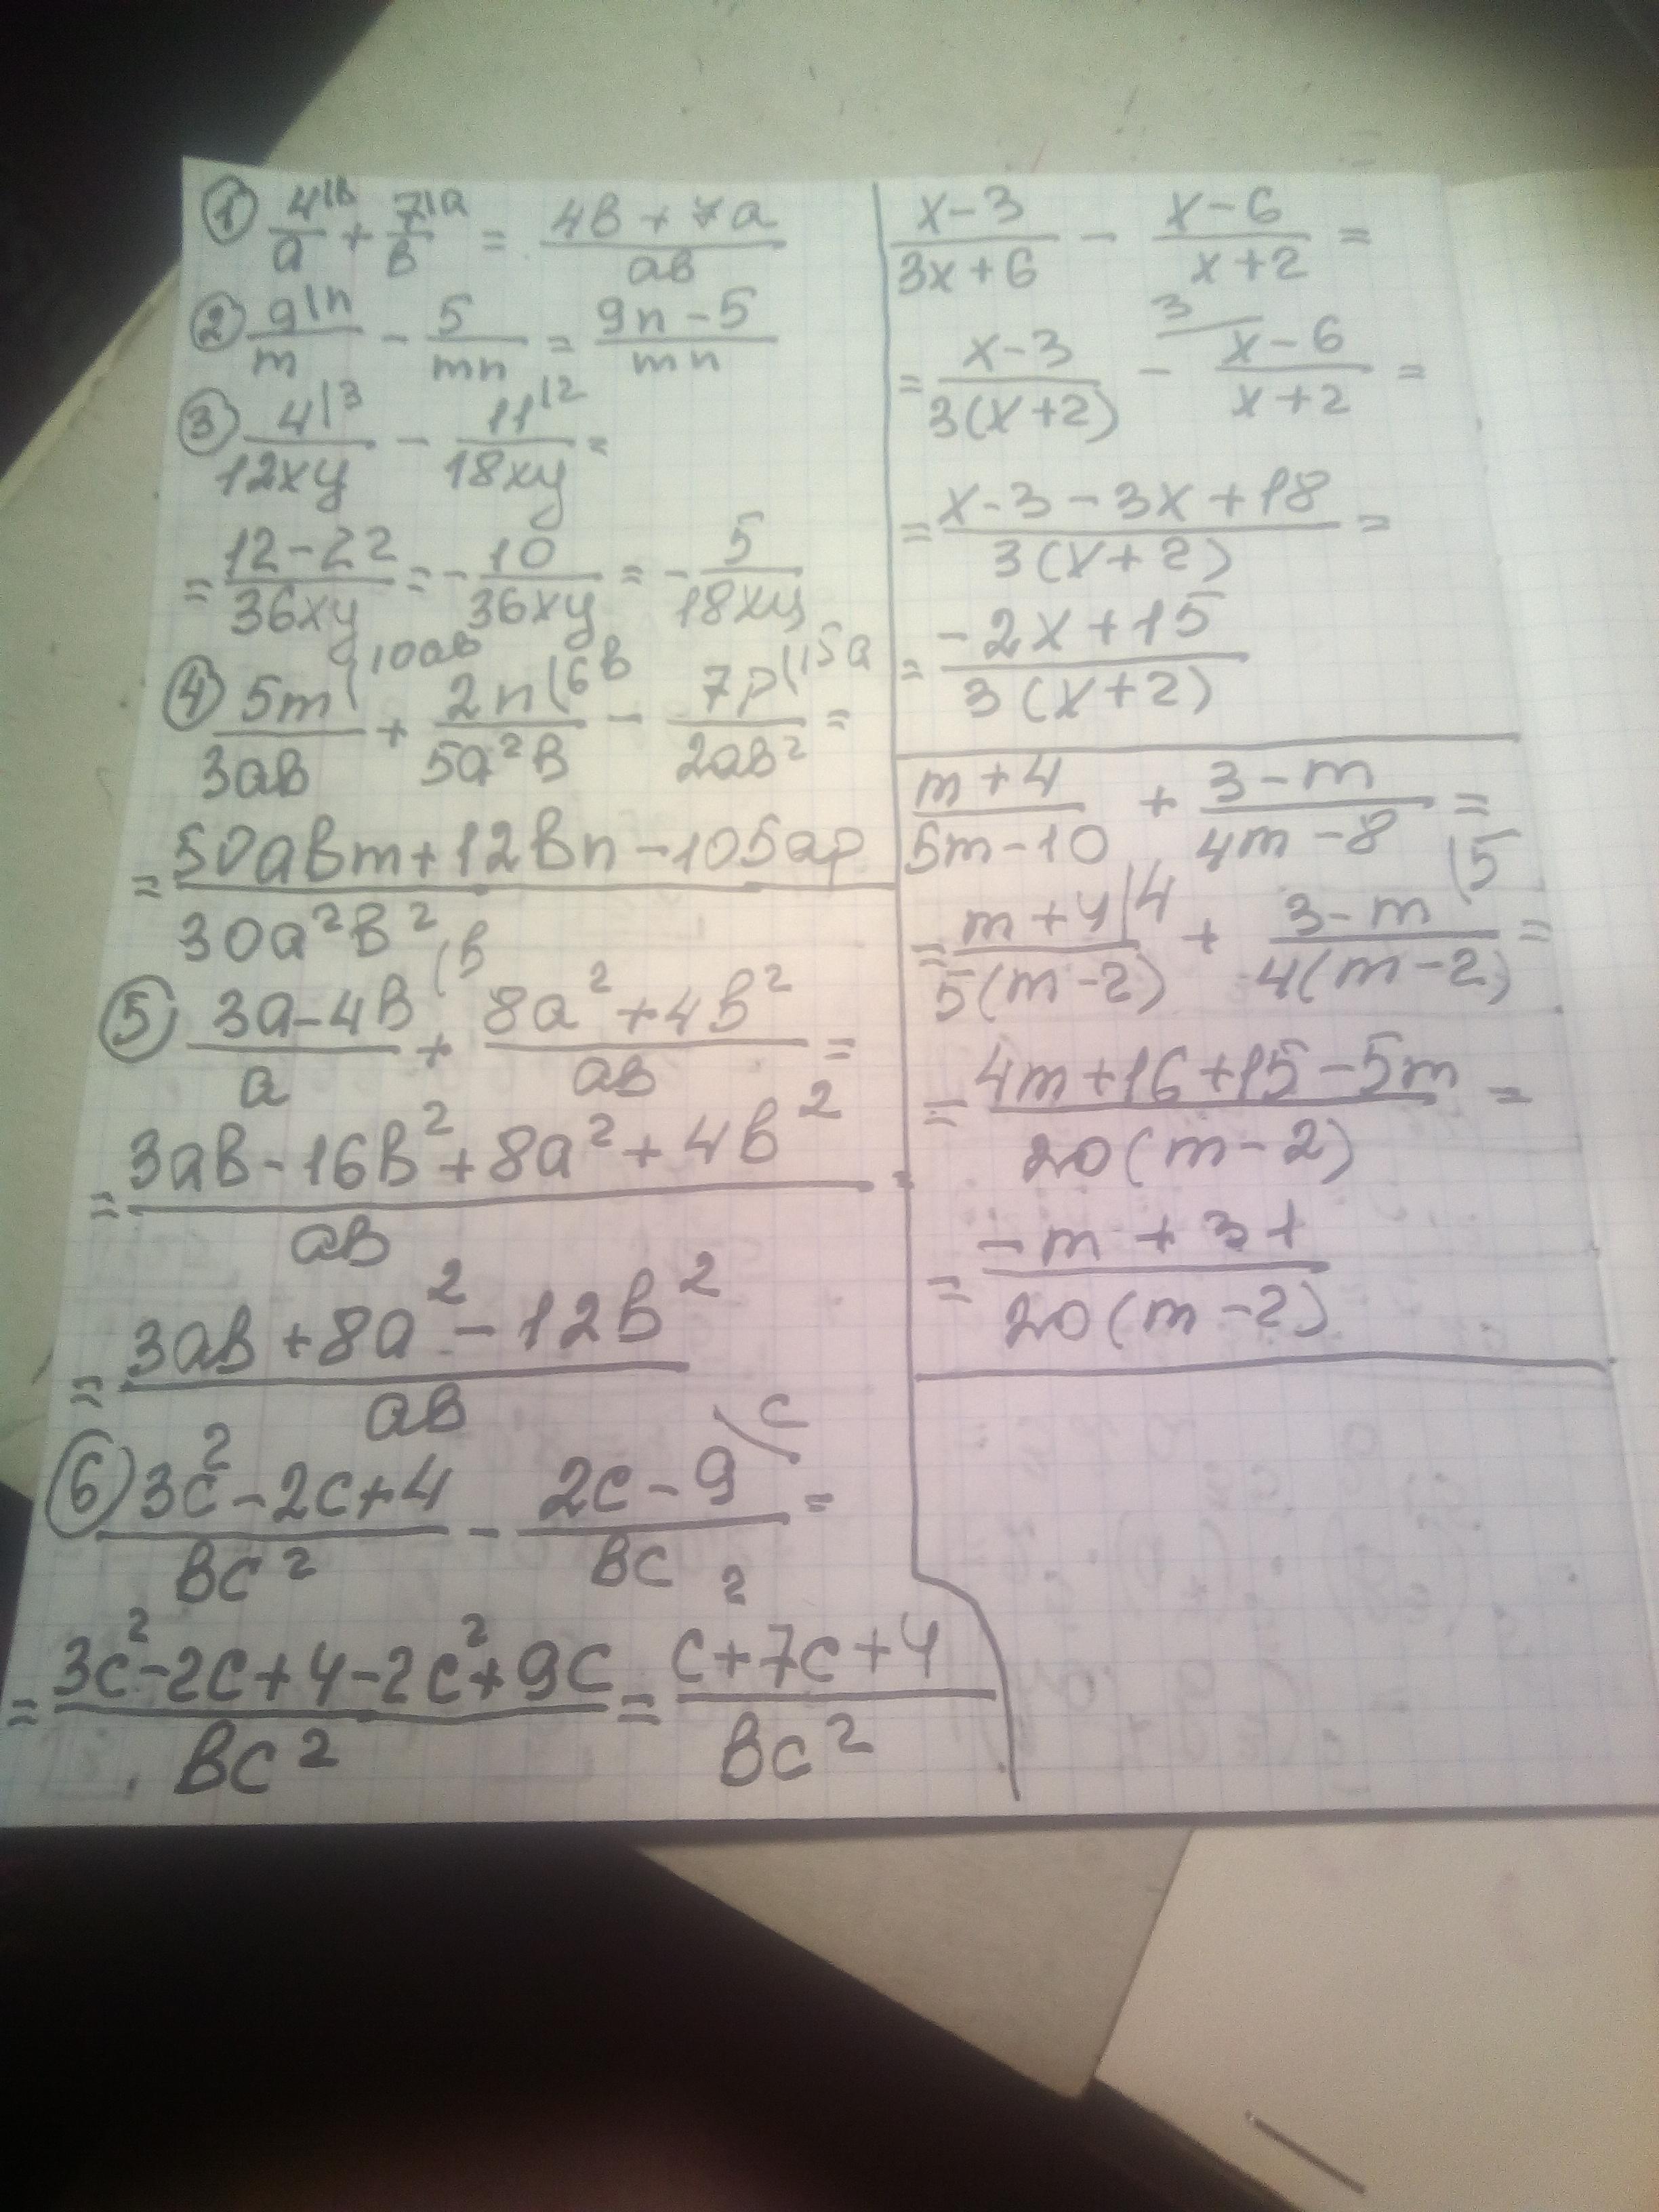 ① 4⁽ᵇ/a + 7⁽ᵃ/b = (4b + 7a)/(ab)
② 9⁽ⁿ/m − 5/(mn) = (9n − 5)/(mn)
③ 4⁽³/(12xy) − 11⁽²/(18xy) =
= (12 − 22)/(36xy) = − 10/(36xy) = − 5/(18xy)
④ 5m⁽¹⁰ᵃᵇ/(3ab) + 2n⁽⁶ᵇ/(5a²b) − 7p⁽¹⁵ᵃ/(2ab²) =
= (50abm + 12bn − 105ap)/(30a²b²)
⑤ (3a − 4b)⁽ᵇ/a + (8a² + 4b²)/(ab) =
= (3ab − 16b² + 8a² + 4b²)/(ab) =
= (3ab + 8a² − 12b²)/(ab)
⑥ (3c² − 2c + 4)/(bc²) − (2c − 9)⁽ᶜ/(bc) =
= (3c² − 2c + 4 − 2c² + 9c)/(bc²) = (c² + 7c + 4)/(bc²)
(x − 3)/(3x + 6) − (x − 6)/(x + 2) =
= (x − 3)/(3(x + 2)) − ³⁾(x − 6)/(x + 2) =
= (x − 3 − 3x + 18)/(3(x + 2)) =
= (−2x + 15)/(3(x + 2))
(m + 4)/(5m − 10) + (3 − m)/(4m − 8) =
= (m + 4)⁽⁴/(5(m − 2)) + (3 − m)⁽⁵/(4(m − 2)) =
= (4m + 16 + 15 − 5m)/(20(m − 2)) =
= (−m + 31)/(20(m − 2))